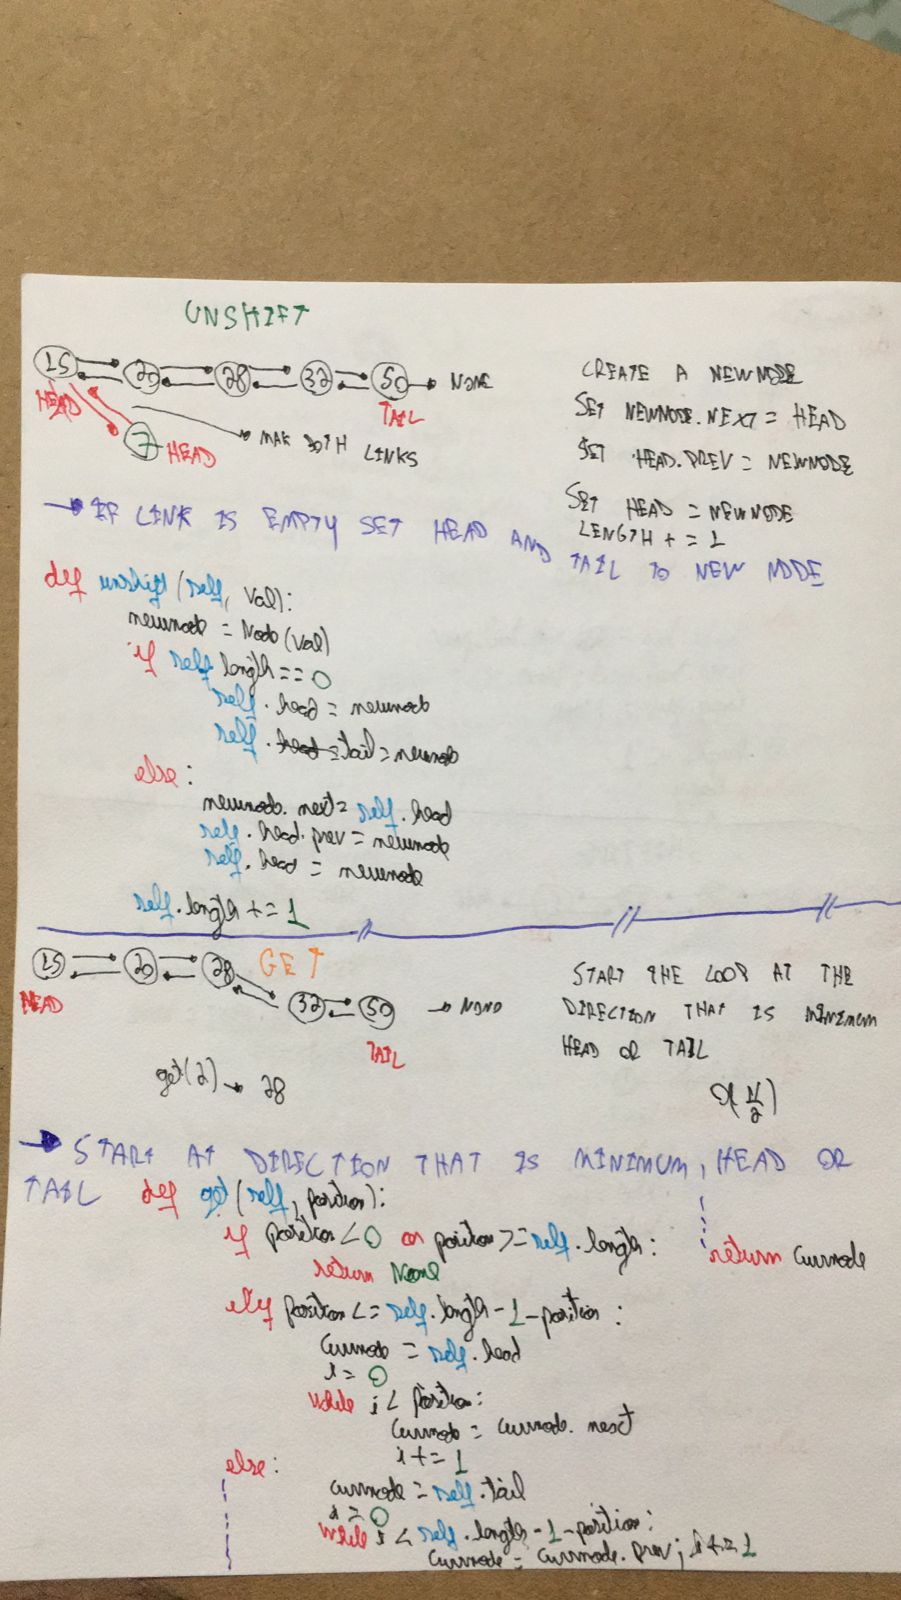 UNSHIFT
15 20 28 32 50 NONE
HEAD TAIL
7 HEAD
MAK BOTH LINKS
CREATE A NEWNODE
SET NEWNODE.NEXT = HEAD
SET HEAD.PREV = NEWNODE
SET HEAD = NEWNODE
LENGTH += 1
IF LINK IS EMPTY SET HEAD AND TAIL TO NEW NODE
def unshift(self, val):
newnode = Node(val)
if self length == 0
self.head = newnode
self.tail = newnode
else:
newnode.next = self.head
self.head.prev = newnode
self.head = newnode
self.length += 1
GET
15 20 28 32 50 NONO
HEAD TAIL
get(2) → 28
START THE LOOP AT THE
DIRECTION THAT IS MINIMUM
HEAD OR TAIL
O(N/2)
START AT DIRECTION THAT IS MINIMUM, HEAD OR
TAIL
def get(self, position):
if position < 0 or position >= self.length:
return None
elif position <= self.length - 1 - position:
curnode = self.head
i = 0
while i < position:
curnode = curnode.next
i += 1
else:
curnode = self.tail
i = 0
while i < self.length - 1 - position:
curnode = curnode.prev; i += 1
return curnode